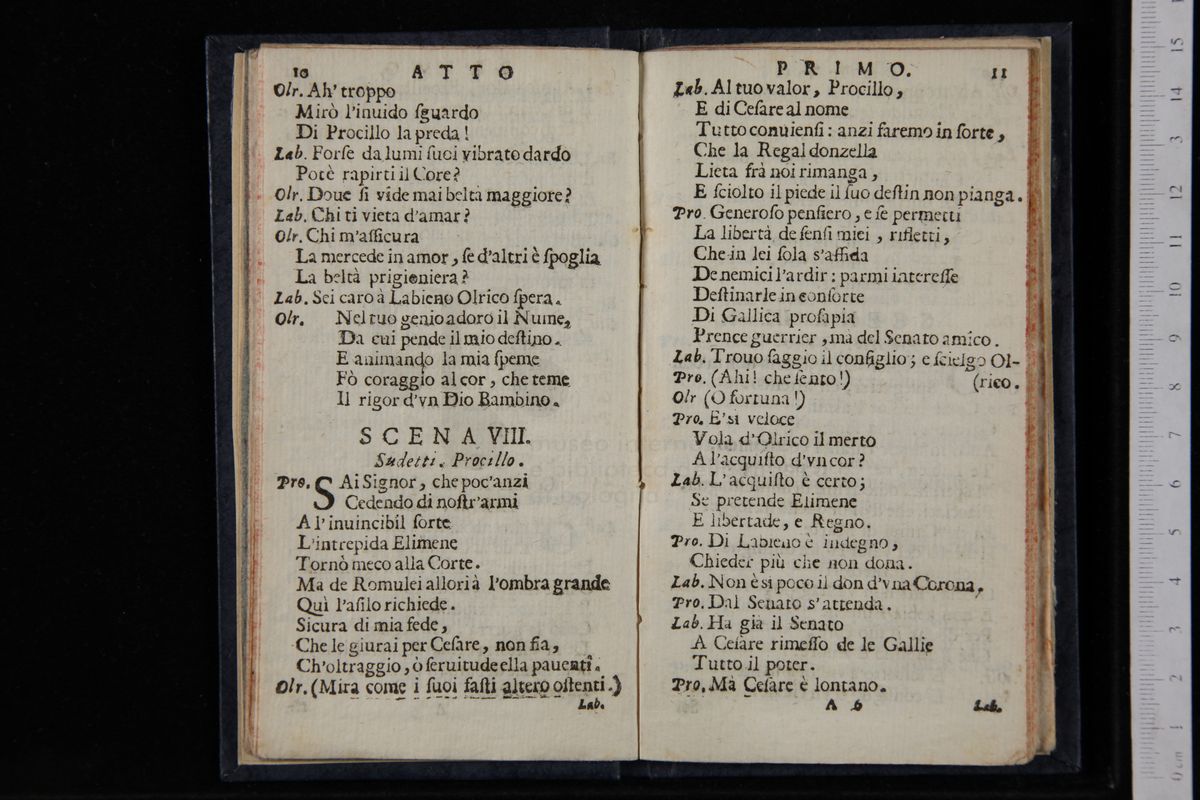 10 ATTO
Olr. Ah' troppo
Mirò l'inuido ſguardo
Di Procillo la preda!
Lab. Forſe da lumi ſuoi vibrato dardo
Potè rapirti il Core?
Olr. Doue ſi vide mai beltà maggiore?
Lab. Chi ti vieta d'amar?
Olr. Chi m'aſſicura
La mercede in amor, ſe d'altri è ſpoglia
La beltà prigioniera?
Lab. Sei caro à Labieno Olrico ſpera.
Olr. Nel tuo genio adoro il Nume,
Da cui pende il mio deſtino.
E animando la mia ſpeme
Fò coraggio al cor, che teme
Il rigor d'vn Dio Bambino.
SCENA VIII.
Sudetti. Procillo.
Pro. SAi Signor, che poc'anzi
Cedendo di noſtr'armi
A l'inuincibil ſorte
L'intrepida Elimene
Tornò meco alla Corte.
Ma de Romulei allori à l'ombra grande
Quì l'aſilo richiede.
Sicura di mia fede,
Che le giurai per Ceſare, non ſia,
Ch'oltraggio, ò ſeruitude ella pauenti.
Olr. (Mira come i ſuoi faſti altero oſtenti.)
Lab.
PRIMO. 11
Lab. Al tuo valor, Procillo,
E di Ceſare al nome
Tutto conuienſi: anzi faremo in ſorte,
Che la Regal donzella
Lieta frà noi rimanga,
E ſciolto il piede il ſuo deſtin non pianga.
Pro. Generoſo penſiero, e ſe permetti
La libertà de ſenſi miei, rifletti,
Che in lei ſola s'affida
De nemici l'ardir: parmi intereſſe
Deſtinarle in conſorte
Di Gallica proſapia
Prence guerrier, mà del Senato amico.
Lab. Trouo ſaggio il conſiglio; e ſcielgo Ol-
Pro. (Ahi! che ſento!) (rico.
Olr (O fortuna!)
Pro. E' sì veloce
Vola d'Olrico il merto
A l'acquiſto d'vn cor?
Lab. L'acquiſto è certo;
Se pretende Elimene
E libertade, e Regno.
Pro. Di Labieno è indegno,
Chieder più che non dona.
Lab. Non è sì poco il don d'vna Corona.
Pro. Dal Senato s'attenda.
Lab. Ha già il Senato
A Ceſare rimeſſo de le Gallie
Tutto il poter.
Pro. Mà Ceſare è lontano.
A 6 Lab.